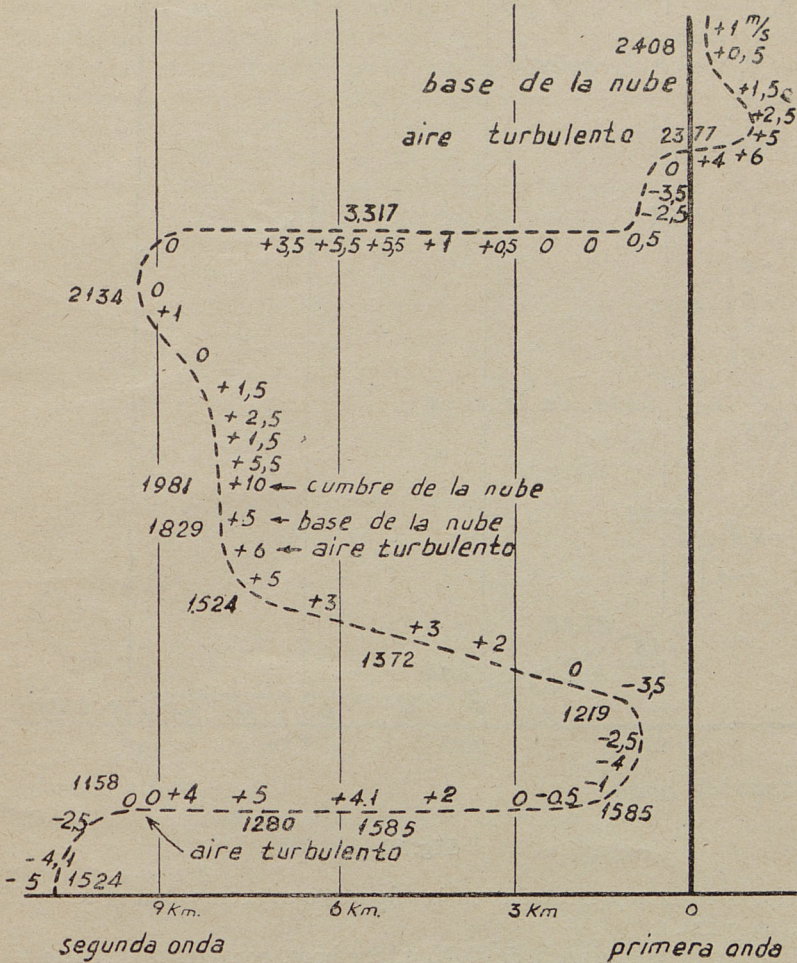 +1 m/s
2408
+0,5
base de la nube
+1,5
+2,5
aire turbulento
2377
+5
0
+4
+6
-3,5
-2,5
3,317
0
+3,5
+5,5
+5,5
+1
+0,5
0
0
0,5
2134
0
+1
0
+1,5
+2,5
+1,5
+5,5
1981
+10
cumbre de la nube
1829
+5
base de la nube
+6
aire turbulento
+5
1524
+3
+3
+2
1372
0
-3,5
1219
-2,5
-4
-1
1158
0 0 +4
+5
+4.1
+2
0 -0.5
1585
-2,5
1280
1585
aire turbulento
-4,1
-5
1524
9 Km.
6 Km.
3 Km
0
segunda onda
primera onda